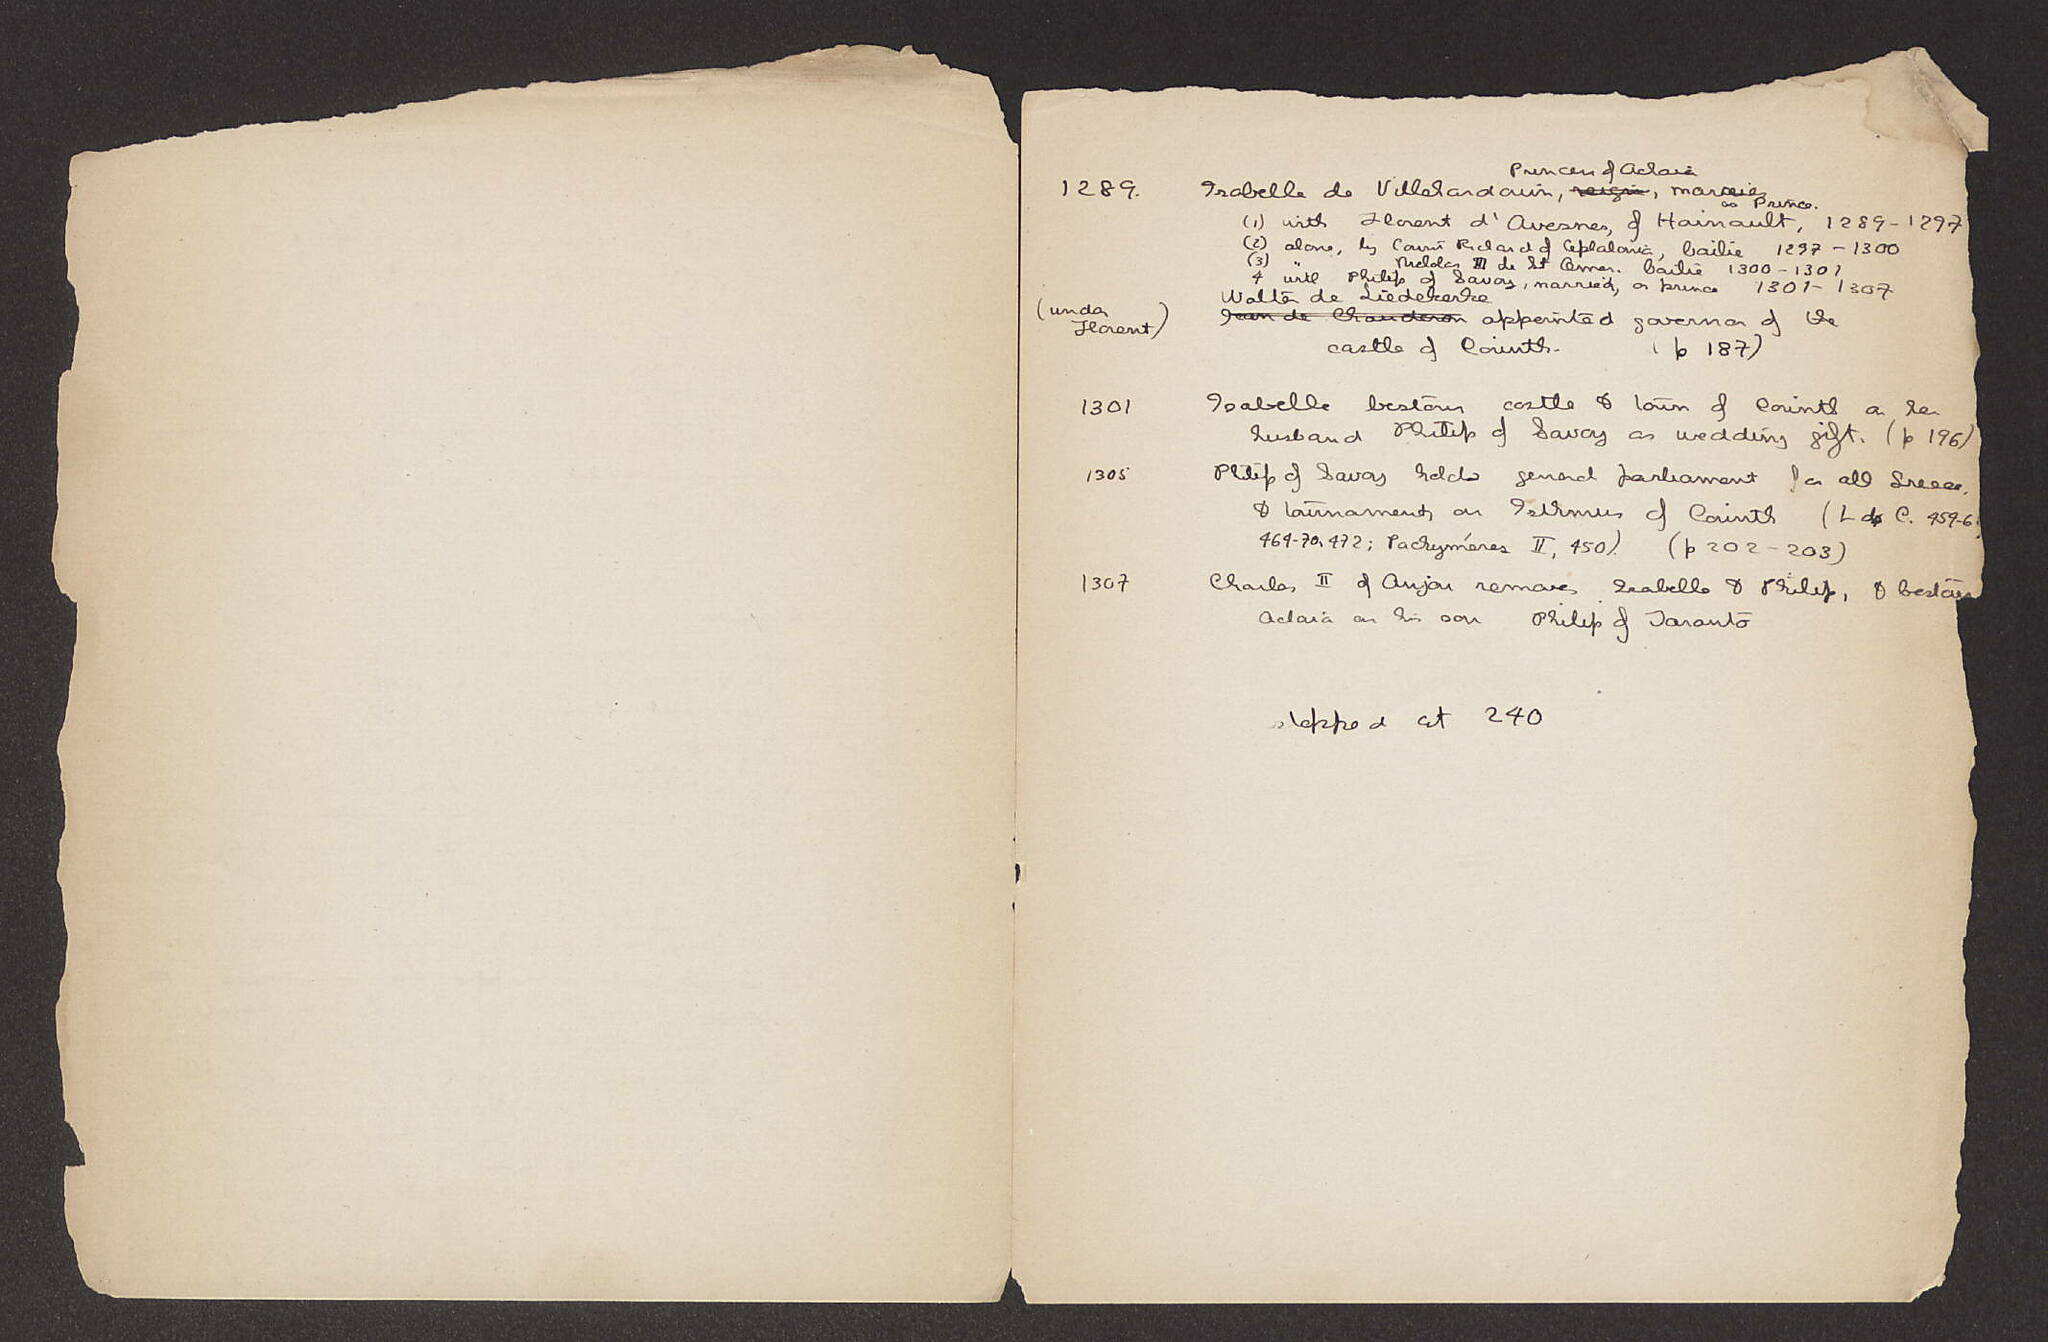 Princess of Achaia
1289. Isabelle de Villehardouin, reigns, marries
as Prince.
(1) with Florent d'Avesnes, of Hainault, 1289-1297
(2) alone, by Count Richard of Cephalonia, bailie 1297-1300
(3) " Nicholas III de St Omer. bailie 1300-1301
4 with Philip of Savoy, married, as prince 1301-1307
Walter de Liedekerke
(under Florent) Jean de Chauderon appointed governor of the
castle of Corinth. (p 187)
1301 Isabelle bestows castle & town of Corinth on her
husband Philip of Savoy as wedding gift. (p 196)
1305 Philip of Savoy holds general parliament for all Greece,
& tournaments on Isthmus of Corinth (L de C. 459-6
464-70, 472; Pachymères II, 450). (p 202-203)
1307 Charles II of Anjou removes Isabelle & Philip, & bestows
Achaia on his son Philip of Taranto
stopped at 240